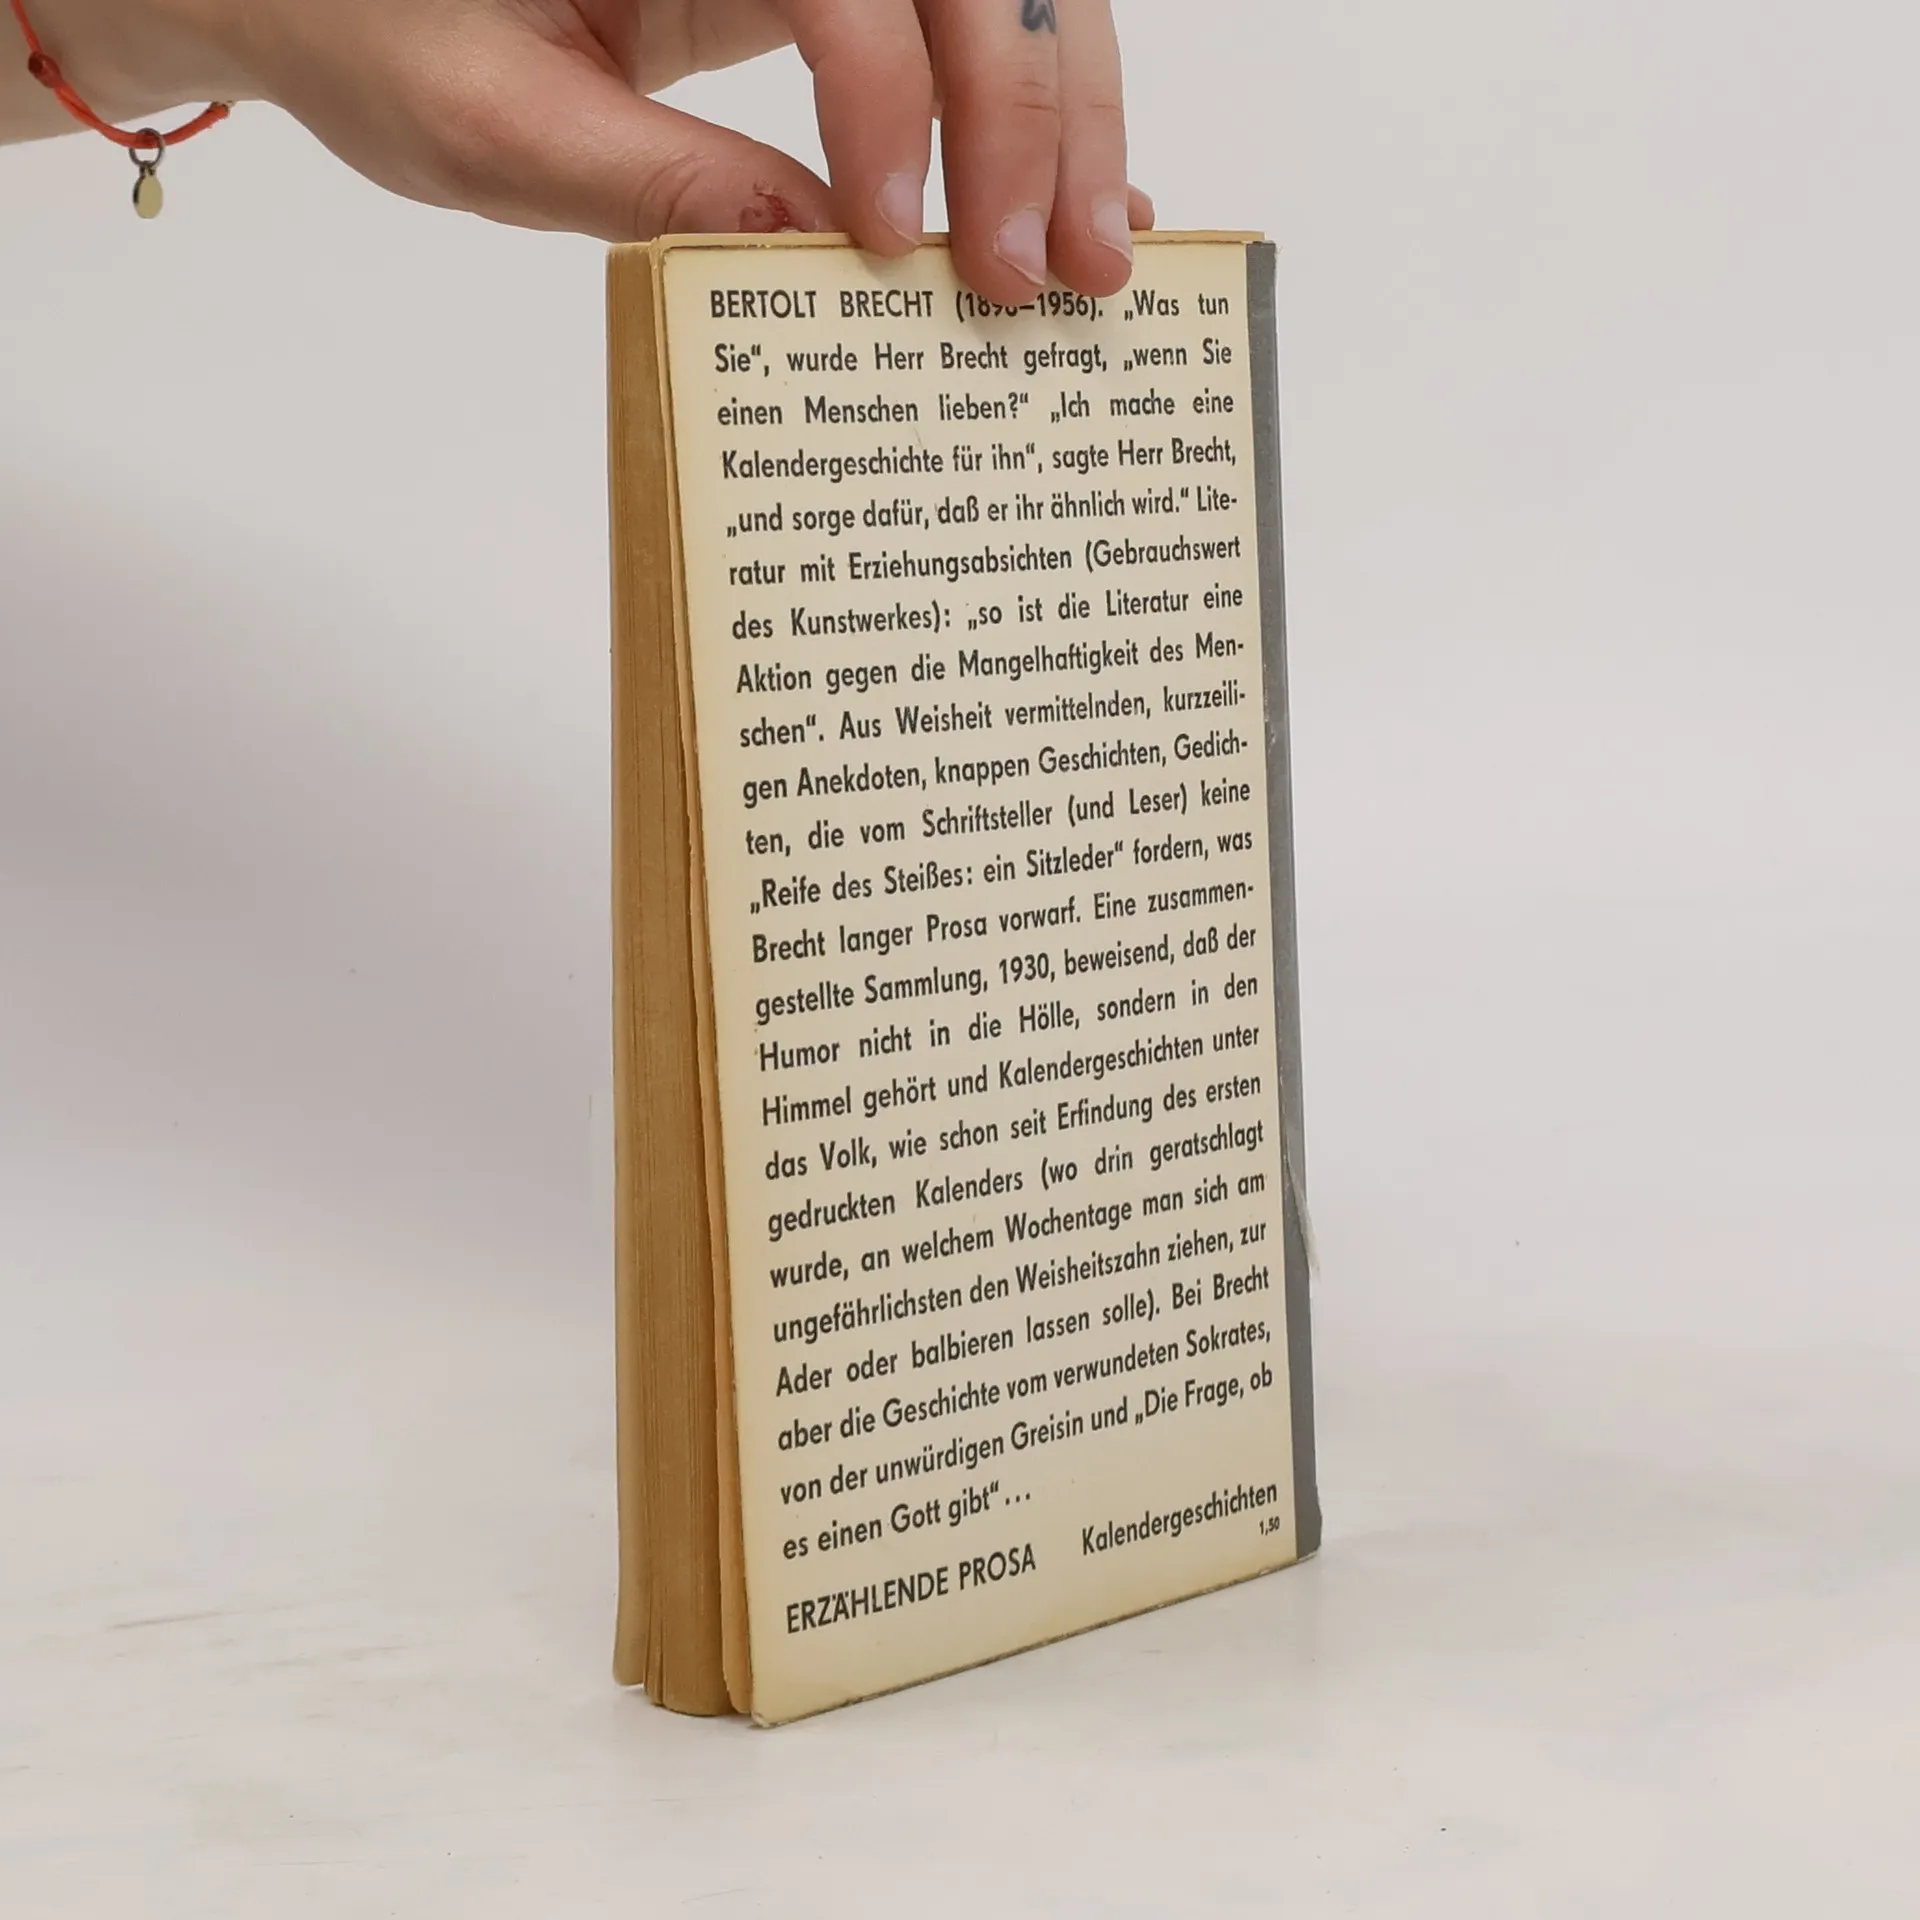 BERTOLT BRECHT (1898–1956). „Was tun
Sie“, wurde Herr Brecht gefragt, „wenn Sie
einen Menschen lieben?“ „Ich mache eine
Kalendergeschichte für ihn“, sagte Herr Brecht,
„und sorge dafür, daß er ihr ähnlich wird.“ Lite-
ratur mit Erziehungsabsichten (Gebrauchswert
des Kunstwerkes): „so ist die Literatur eine
Aktion gegen die Mangelhaftigkeit des Men-
schen“. Aus Weisheit vermittelnden, kurzzeili-
gen Anekdoten, knappen Geschichten, Gedich-
ten, die vom Schriftsteller (und Leser) keine
„Reife des Steißes: ein Sitzleder“ fordern, was
Brecht langer Prosa vorwarf. Eine zusammen-
gestellte Sammlung, 1930, beweisend, daß der
Humor nicht in die Hölle, sondern in den
Himmel gehört und Kalendergeschichten unter
das Volk, wie schon seit Erfindung des ersten
gedruckten Kalenders (wo drin geratschlagt
wurde, an welchem Wochentage man sich am
ungefährlichsten den Weisheitszahn ziehen, zur
Ader oder balbieren lassen solle). Bei Brecht
aber die Geschichte vom verwundeten Sokrates,
von der unwürdigen Greisin und „Die Frage, ob
es einen Gott gibt“...
ERZÄHLENDE PROSA Kalendergeschichten
1,50